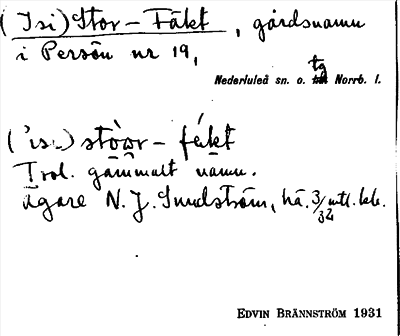 (Isi) Stor-Fäkt, gårdsnamn
i Persön nr 19,
Nederluleå sn. o. tg Norrb. l.
stòor-
Trol. gammalt namn.
Ägare N. J. Sundström, hä. 3/32 mtl.
EDVIN BRÄNNSTRÖM 1931